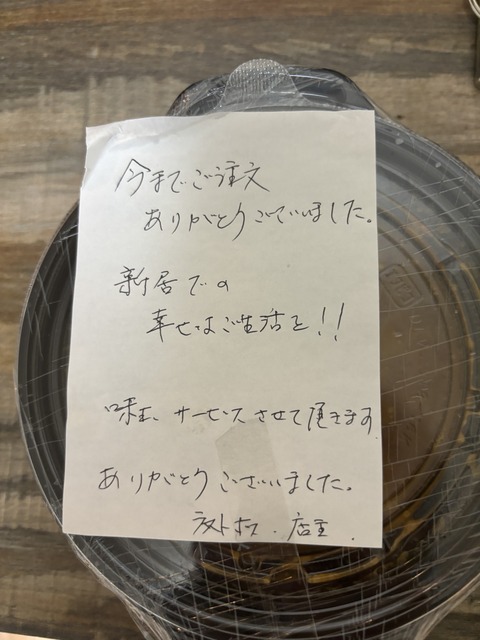 今までご注文
ありがとうございました。
新居での
幸せなご生活を!!
味玉、サービスさせて頂きます
ありがとうございました。
店主.